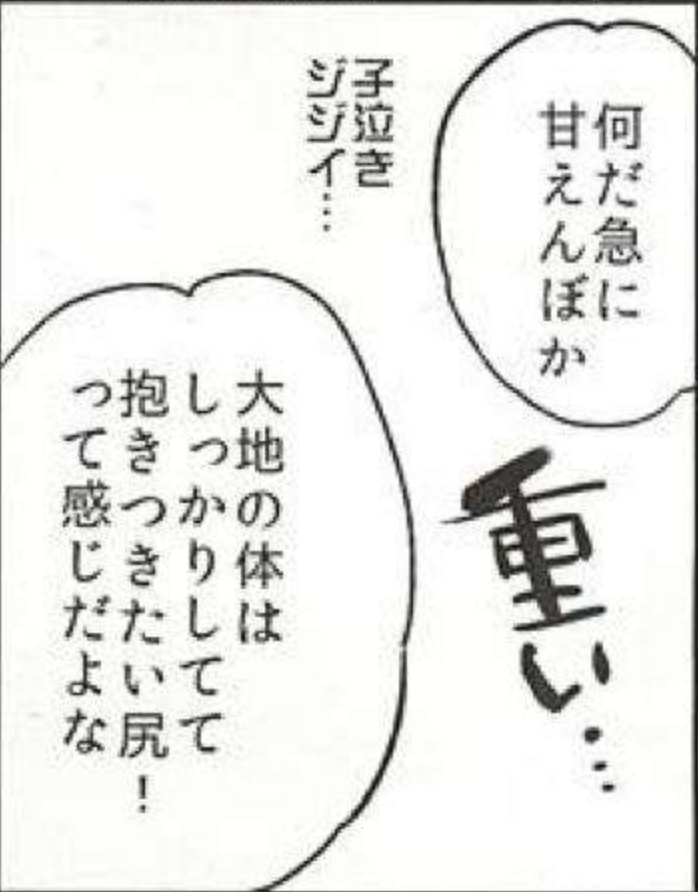 何だ急に
甘えんぼか
子泣き
ジジイ…
重い…
大地の体は
しっかりしてて
抱きつきたい尻！
って感じだよな